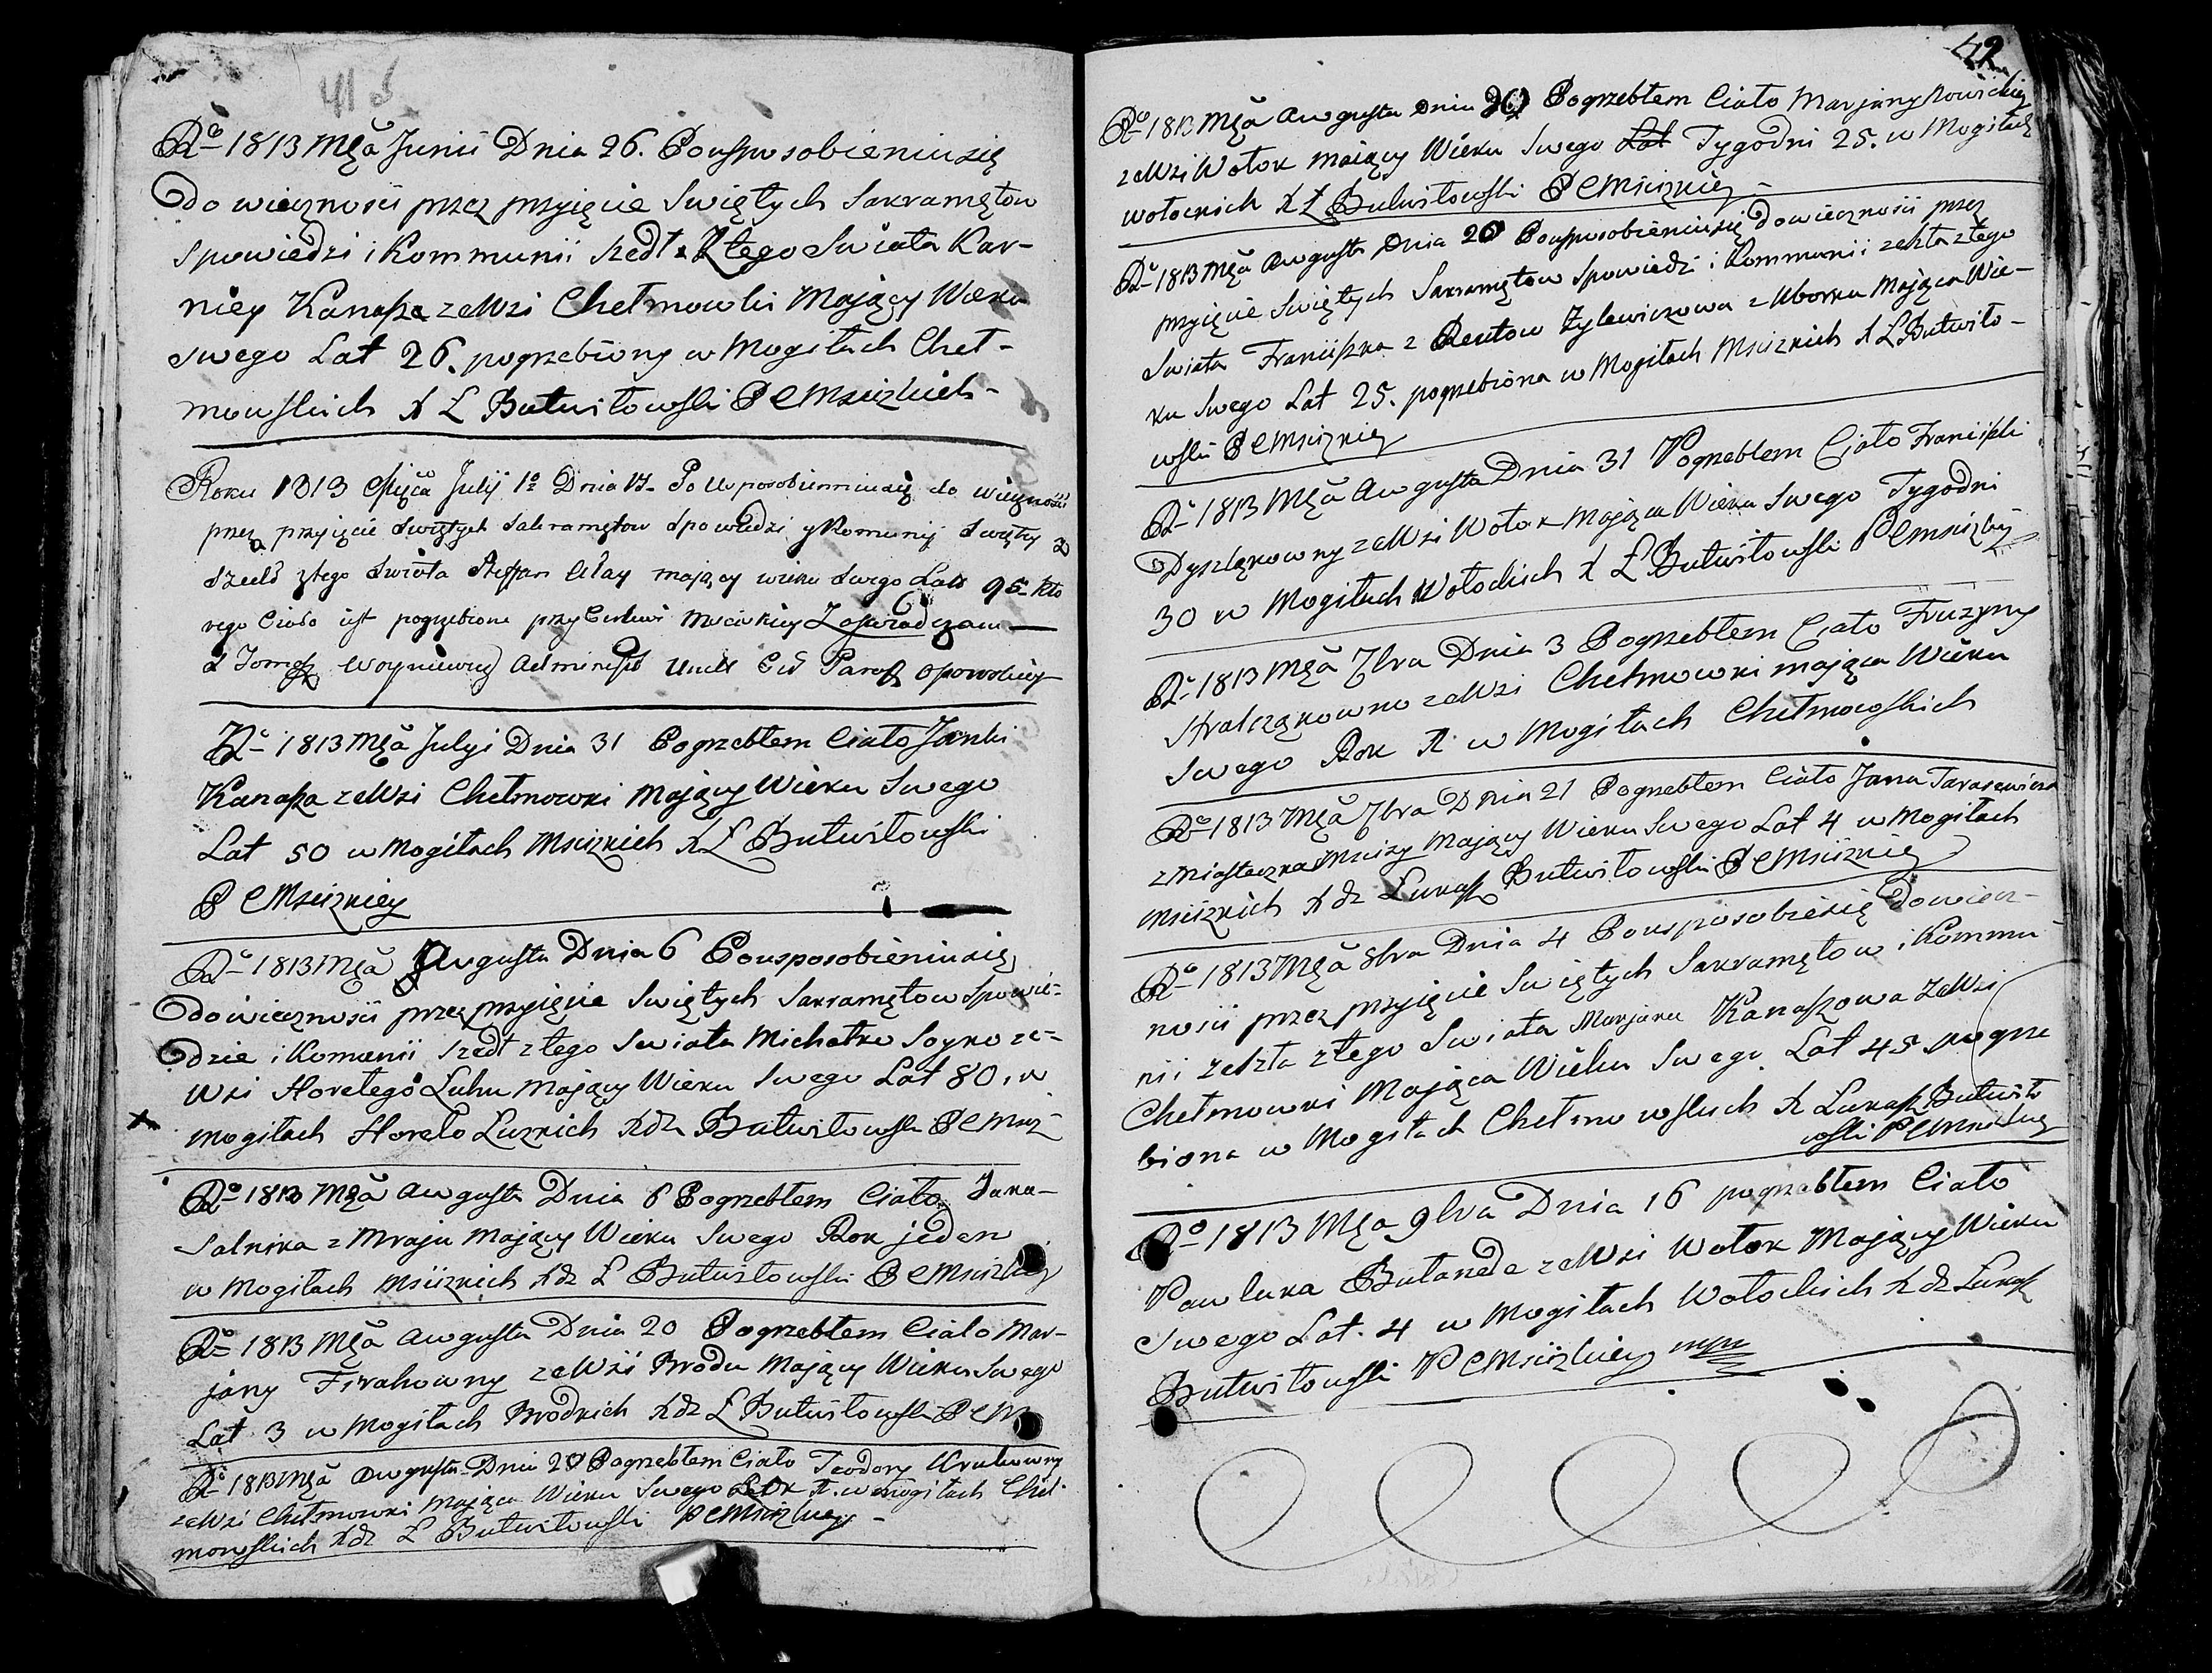 41
Ro 1813 Mca Junii Dnia 26. Po usposobieniu się
do wieczności przez przyięcie Swiętych Sakramętow
spowiedzi i Kommunii szedł z tego Swiata Kor-
niey Kanasza ze Wsi Chełmowki Maiący Wieku
swego Lat 26. pogrzebiony w Mogiłach Cheł-
mowskich X Ł Butwiłowski P C Msciżkich
Roku 1813 Mięsca Julij Dnia Po Usposobienniu się do wieczności
przez przyięcie Swiętych Sakramętow Spowiedzi y Komunij Swięty
Szedł z tego Swiata Steffan mający wieku Swego Lat 95 kto
rego Ciało iest pogrzebione przy Cerkwi Mscizkiey Zaswiadczam
X Tomasz Woyniewicz Administ Paraf
Ro 1813 Mca Julyi Dnia 31 Pogrzebłem Ciało Janki
Kanasza ze Wsi Chełmowki Mający Wieku Swego
Lat 50 w Mogiłach Mscizkich X Ł Butwiłowski
P C Mscizkiey
Ro 1813 Mca Augusta Dnia 6 Po usposobieniu się
do wieczności przez przyięcie Swiętych Sakramętow Spowie-
dzie i Komunii szedł z tego Swiata Michałko Soyko ze-
Wsi Horełego Luhu Mający Wieku Swego Lat 80. w
mogiłach Horeło Luzkich Xdz Butwiłowski P C Msciż
Ro 1813 Mca Augusta Dnia 6 Pogrzebłem Ciało Jana-
Salnika z Mraju Mający Wieku Swego Rok jeden
w Mogiłach Msciżkich Xdz Ł Butwiłowski P C Mscizkiey
Ro 1813 Mca Augusta Dnia 20 Pogrzebłem Ciało Mar-
jany Firahowny ze Wsii Brodu Mający Wieku Swego
Lat 3 w Mogiłach Brodkich Xdz Ł Butwiłowski P C M
Ro 1813 Mca Augusta Dnia 20 Pogrzebłem Ciało Teodory Krukowny
ze Wsi Chełmowki Mająca Wieku Swego w mogiłach Cheł-
mowskich Xdz Ł Butwiłowski P C Mscizkiey
42
Ro 1813 Mca Augusta Dnia 20 Pogrzebłem Ciało Marjany
ze Wsi Wołok Mający Wieku Swego Lat Tygodni 25. w Mogiłach
wołockich X Ł Butwiłowski P C Mscizkiey
Ro 1813 Mca Augusta Dnia 20 Po usposobieniu się do wieczności przez
przyięcie Swiętych Sakramętow Spowiedzi i Kommunii zeszła z tego
Swiata Franiszka z Reutow Zylewiczowa z Uborku Mająca Wie-
ku Swego Lat 25. pogrzebiona w Mogiłach Mscizkich X Ł Butwiło-
wski P C Mscizkiey
Ro 1813 Mca Augusta Dnia 31 Pogrzebłem Ciało Franiszki
Dyszlękowny ze Wsi Wołok Mająca Wieku Swego Tygodni
30 w Mogiłach Wołockich X Ł Butwiłowski P C Mscizkiey
Ro 1813 Mca 7bra Dnia 3 Pogrzebłem Ciało Fruzyny
ze Wsi Chełmowki mająca Wieku
Swego Rok w Mogiłach Chełmowskich
Ro 1813 Mca 7bra Dnia 21 Pogrzebłem Ciało Jana Tarasewicza
z Miasteczka Mscizy Mający Wieku Swego Lat 4 w Mogiłach
Msciżkich Xdz Łukasz Butwiłowski P C Mscizkiey
Ro 1813 Mca 8bra Dnia 4 Po usposobie się do wiecz-
nosii przez przyięcie Swiętych Sakramętow i Kommu
nii zeszła z tego Swiata Marjana Kanaszowa ze Wsi
Chełmowki Mająca Wieku Swego Lat 45 pogrze
biona w Mogiłach Chełmowskich X Łukasz Butwiło
wski P C Mscizkiey
Ro 1813 Mca 9bra Dnia 16 pogrzebłem Ciało
Pawluka ze Wsi Wołok Mający Wieku
Swego Lat. 4 w Mogiłach Wołockich Xdz Łukasz
Butwiłowski P C Mscizkiey